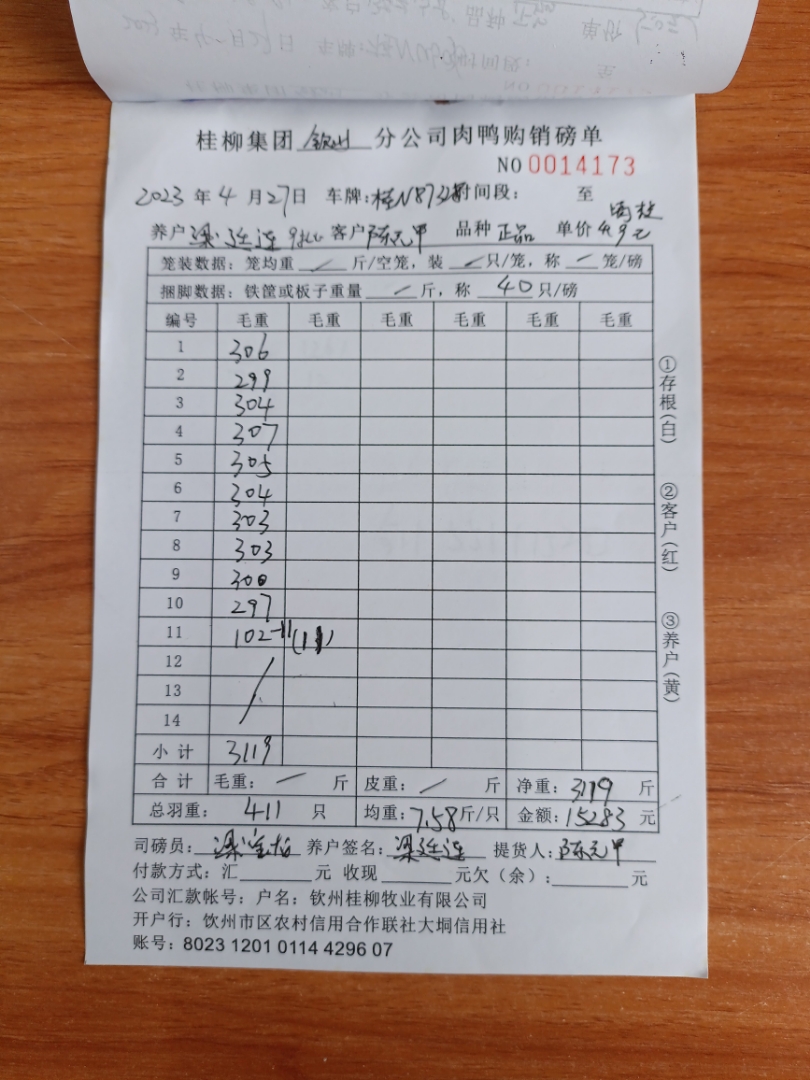 桂柳集团 钦州 分公司肉鸭购销磅单
NO 0014173
2023 年 4 月 27 日 车牌:桂N873 时间段: 至
养户 梁廷连 9批 客户 陈元甲 品种 正品 单价 4.9元
笼装数据: 笼均重 / 斤/空笼, 装 / 只/笼, 称 一 笼/磅
捆脚数据: 铁筐或板子重量 一 斤, 称 40 只/磅
编号 毛重 毛重 毛重 毛重 毛重 毛重
1 306
2 299
3 304
4 307
5 305
6 304
7 303
8 303
9 300
10 297
11 102-11(11)
12
13
14
小计 3119
合计 毛重: 一 斤 皮重: / 斤 净重: 3119 斤
总羽重: 411 只 均重: 7.58斤/只 金额: 15283 元
司磅员: 梁 养户签名: 梁廷连 提货人: 陈元甲
付款方式: 汇 元 收现 元欠(余): 元
公司汇款帐号: 户名: 钦州桂柳牧业有限公司
开户行: 钦州市区农村信用合作联社大垌信用社
账号: 8023 1201 0114 4296 07
①存根(白)
②客户(红)
③养户(黄)